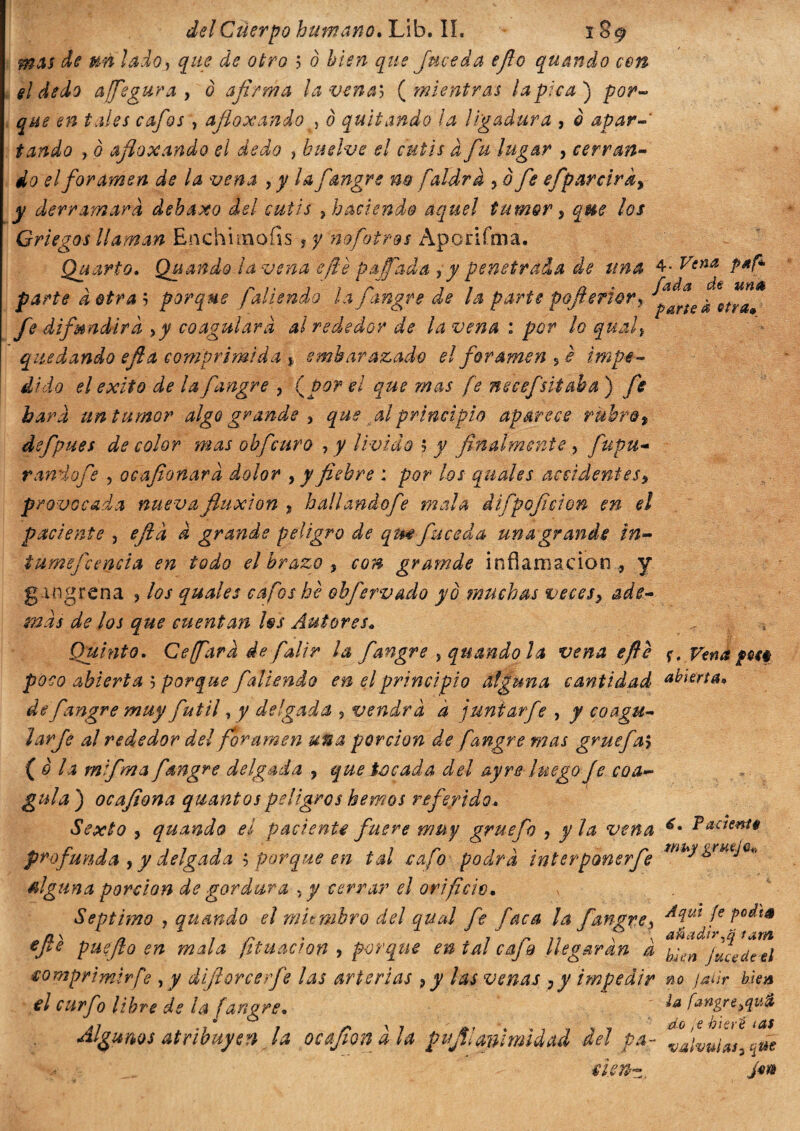 del Cuerpo humano. Lib. II. 189
mas de un lado, que de otro ; ò bien que ſuceda eſto quando con
el dedo aſſegura , ò afirma la vena; ( mientras la pica ) por-
que en tales caſos , afloxando , ò quitando la ligadura , ò apar-
tando , ò afloxando el dedo , buelve el cutis à ſu lugar , cerran-
do el foramen de la vena , y la ſangre no ſaldrà , ò ſe eſparcirà,
y derramarà debaxo del cutis , haciendo aquel tumor , que los
Griegos llaman Enchimoſis , y noſotros Aporiſma.
Quarto. Quando la vena eſtè paſſada , y penetrada de una
parte à otra ; porque ſaliendo la ſangre de la parte poſterior,
ſe difundirà , y coagularà al rededor de la vena : por lo qual,
quedando eſta comprimida , embarazado el foramen , è impe-
dido el exito de la ſangre , ( por el que mas ſe neceſsitaba ) ſe
harà un tumor algo grande , que al principio aparece rubro,
deſpues de color mas obſcuro , y livido ; y finalmente , ſupu-
randoſe , ocaſionarà dolor , y fiebre : por los quales accidentes,
provocada nueva fluxion , hallandoſe mala diſpoſicion en el
paciente , eſtà à grande peligro de que ſuceda una grande in-
tumeſcencia en todo el brazo , con gramde inflamacion , y
gangrena , los quales caſos hè obſervado yò muchas veces, ade-
màs de los que cuentan los Autores.
Quinto. Ceſſarà de ſalir la ſangre , quando la vena eſtè
poco abierta ; porque ſaliendo en el principio alguna cantidad
de ſangre muy ſutil , y delgada , vendrà à juntarſe , y coagu-
larſe al rededor del foramen una porcion de ſangre mas grueſa;
( ò la miſma ſangre delgada , que tocada del ayre luego ſe coa-
gula ) ocaſiona quantos peligros hemos referido.
Sexto , quando el paciente fuere muy grueſo , y la vena
profunda , y delgada ; porque en tal caſo podrà interponerſe
alguna porcion de gordura , y cerrar el orificio.
Septimo , quando el miembro del qual ſe ſaca la ſangre,
eſtè pueſto en mala ſituacion , porque en tal caſo llegaràn à
comprimirſe , y diſtorcerſe las arterias , y las venas , y impedir
el curſo libre de la ſangre.
Algunos atribuyen la ocaſion à la puſilanimidad del pa-
cien-
4. Vena paſ-
ſada de una
parte à otra.
5. Vena poco
abierta.
6. Paciente
muy grueſo.
Aqui ſe podia
añadir, q̃ tam
bien ſucede el
no ſalir bien
la ſangre, quã
do ſe hiere las
valvulas, que
ſon